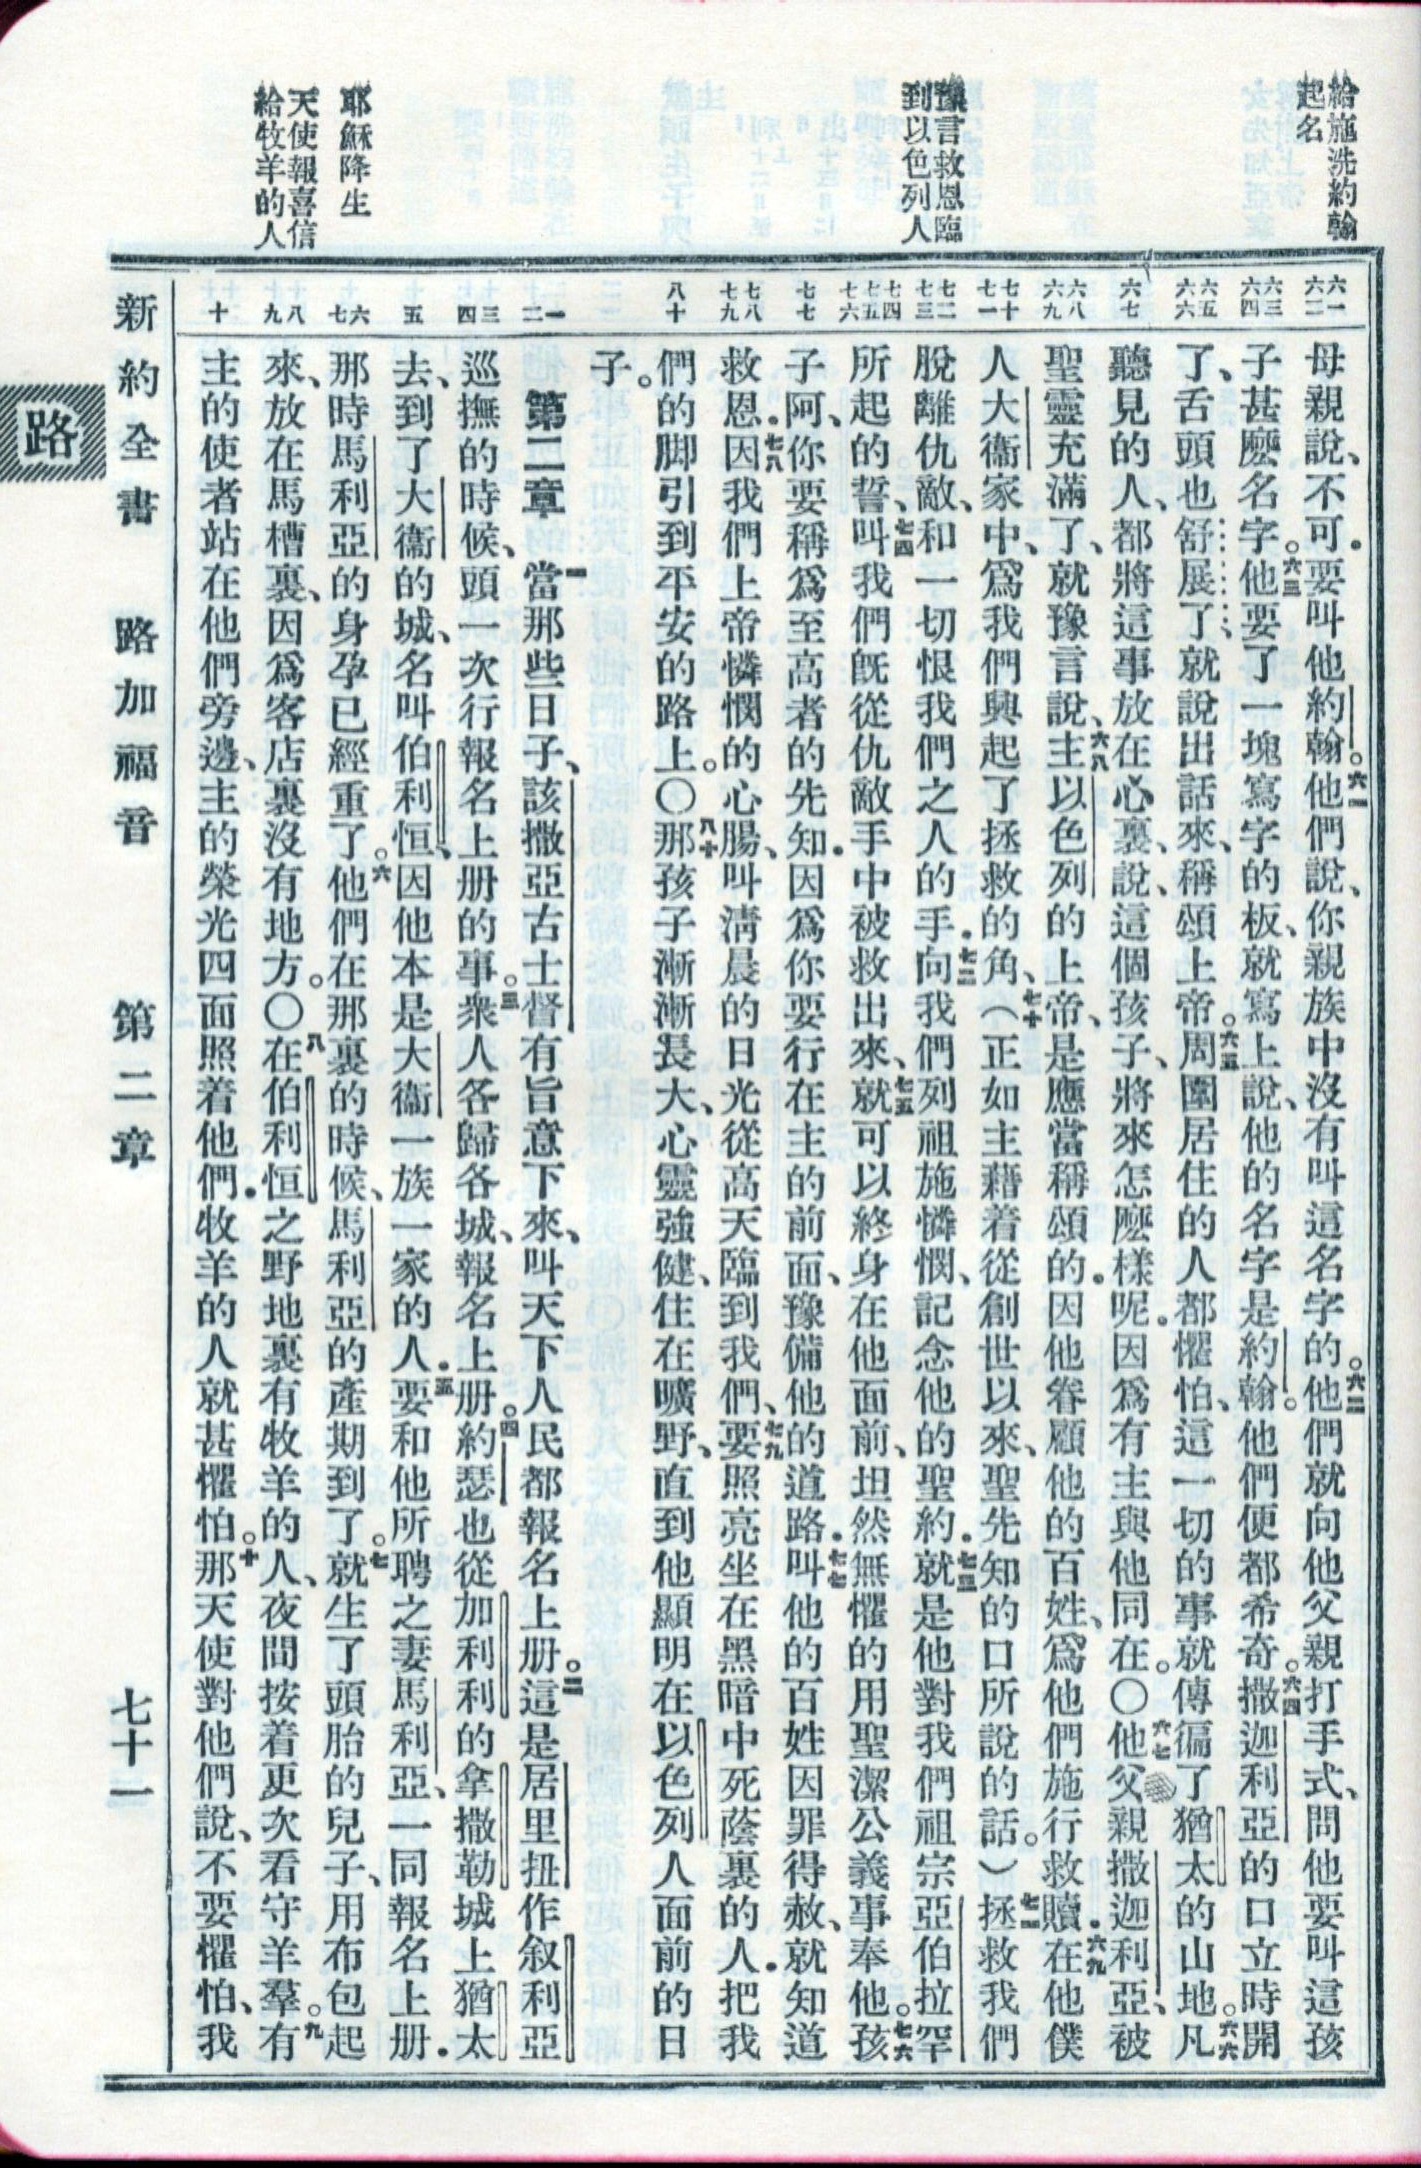 給施洗約翰
起名
豫言救恩臨
到以色列人
耶穌降生
天使報喜信
給牧羊的人
六一
六二
六三
六四
六五
六六
六七
六八
六九
七十
七一
七二
七三
七四
七五
七六
七七
七八
七九
八十
一
二
三
四
五
六
七
八
九
十
母親說、不可．要叫他約翰。六一他們說、你親族中沒有叫這名字的。六二他們就向他父親打手式、問他要叫這孩
子甚麼名字。六三他要了一塊寫字的板、就寫上說、他的名字是約翰。他們便都希奇。六四撒迦利亞的口立時開
了、舌頭也舒展了、就說出話來、稱頌上帝。六五周圍居住的人都懼怕、這一切的事就傳徧了猶太的山地。六六凡
聽見的人、都將這事放在心裏、說、這個孩子、將來怎麼樣呢．因爲有主與他同在。〇六七他父親撒迦利亞、被
聖靈充滿了、就豫言說、六八主以色列的上帝、是應當稱頌的．因他眷顧他的百姓、爲他們施行救贖．六九在他僕
人大衞家中、爲我們興起了拯救的角、七十（正如主藉着從創世以來、聖先知的口所說的話。）七一拯救我們
脫離仇敵、和一切恨我們之人的手．七二向我們列祖施憐憫、記念他的聖約．七三就是他對我們祖宗亞伯拉罕
所起的誓、七四叫我們旣從仇敵手中被救出來、七五就可以終身在他面前、坦然無懼的用聖潔公義事奉他。七六孩
子阿、你要稱爲至高者的先知．因爲你要行在主的前面、豫備他的道路．七七叫他的百姓因罪得赦、就知道
救恩．七八因我們上帝憐憫的心腸、叫淸晨的日光從高天臨到我們、七九要照亮坐在黑暗中死蔭裏的人．把我
們的脚引到平安的路上。〇八十那孩子漸漸長大、心靈强健、住在曠野、直到他顯明在以色列人面前的日
子。
第二章 一當那些日子、該撒亞古士督有旨意下來、叫天下人民都報名上册。二這是居里扭作叙利亞
巡撫的時候、頭一次行報名上册的事。三衆人各歸各城、報名上册。四約瑟也從加利利的拿撒勒城上猶太
去、到了大衞的城、名叫伯利恒、因他本是大衞一族一家的人．五要和他所聘之妻馬利亞、一同報名上册．
那時馬利亞的身孕已經重了。六他們在那裏的時候、馬利亞的產期到了。七就生了頭胎的兒子、用布包起
來、放在馬槽裏、因爲客店裏沒有地方。〇八在伯利恒之野地裏有牧羊的人、夜間按着更次看守羊羣。九有
主的使者站在他們旁邊、主的榮光四面照着他們．牧羊的人就甚懼怕。十那天使對他們說、不要懼怕、我
新約全書 路加福音 第二章 七十一
路